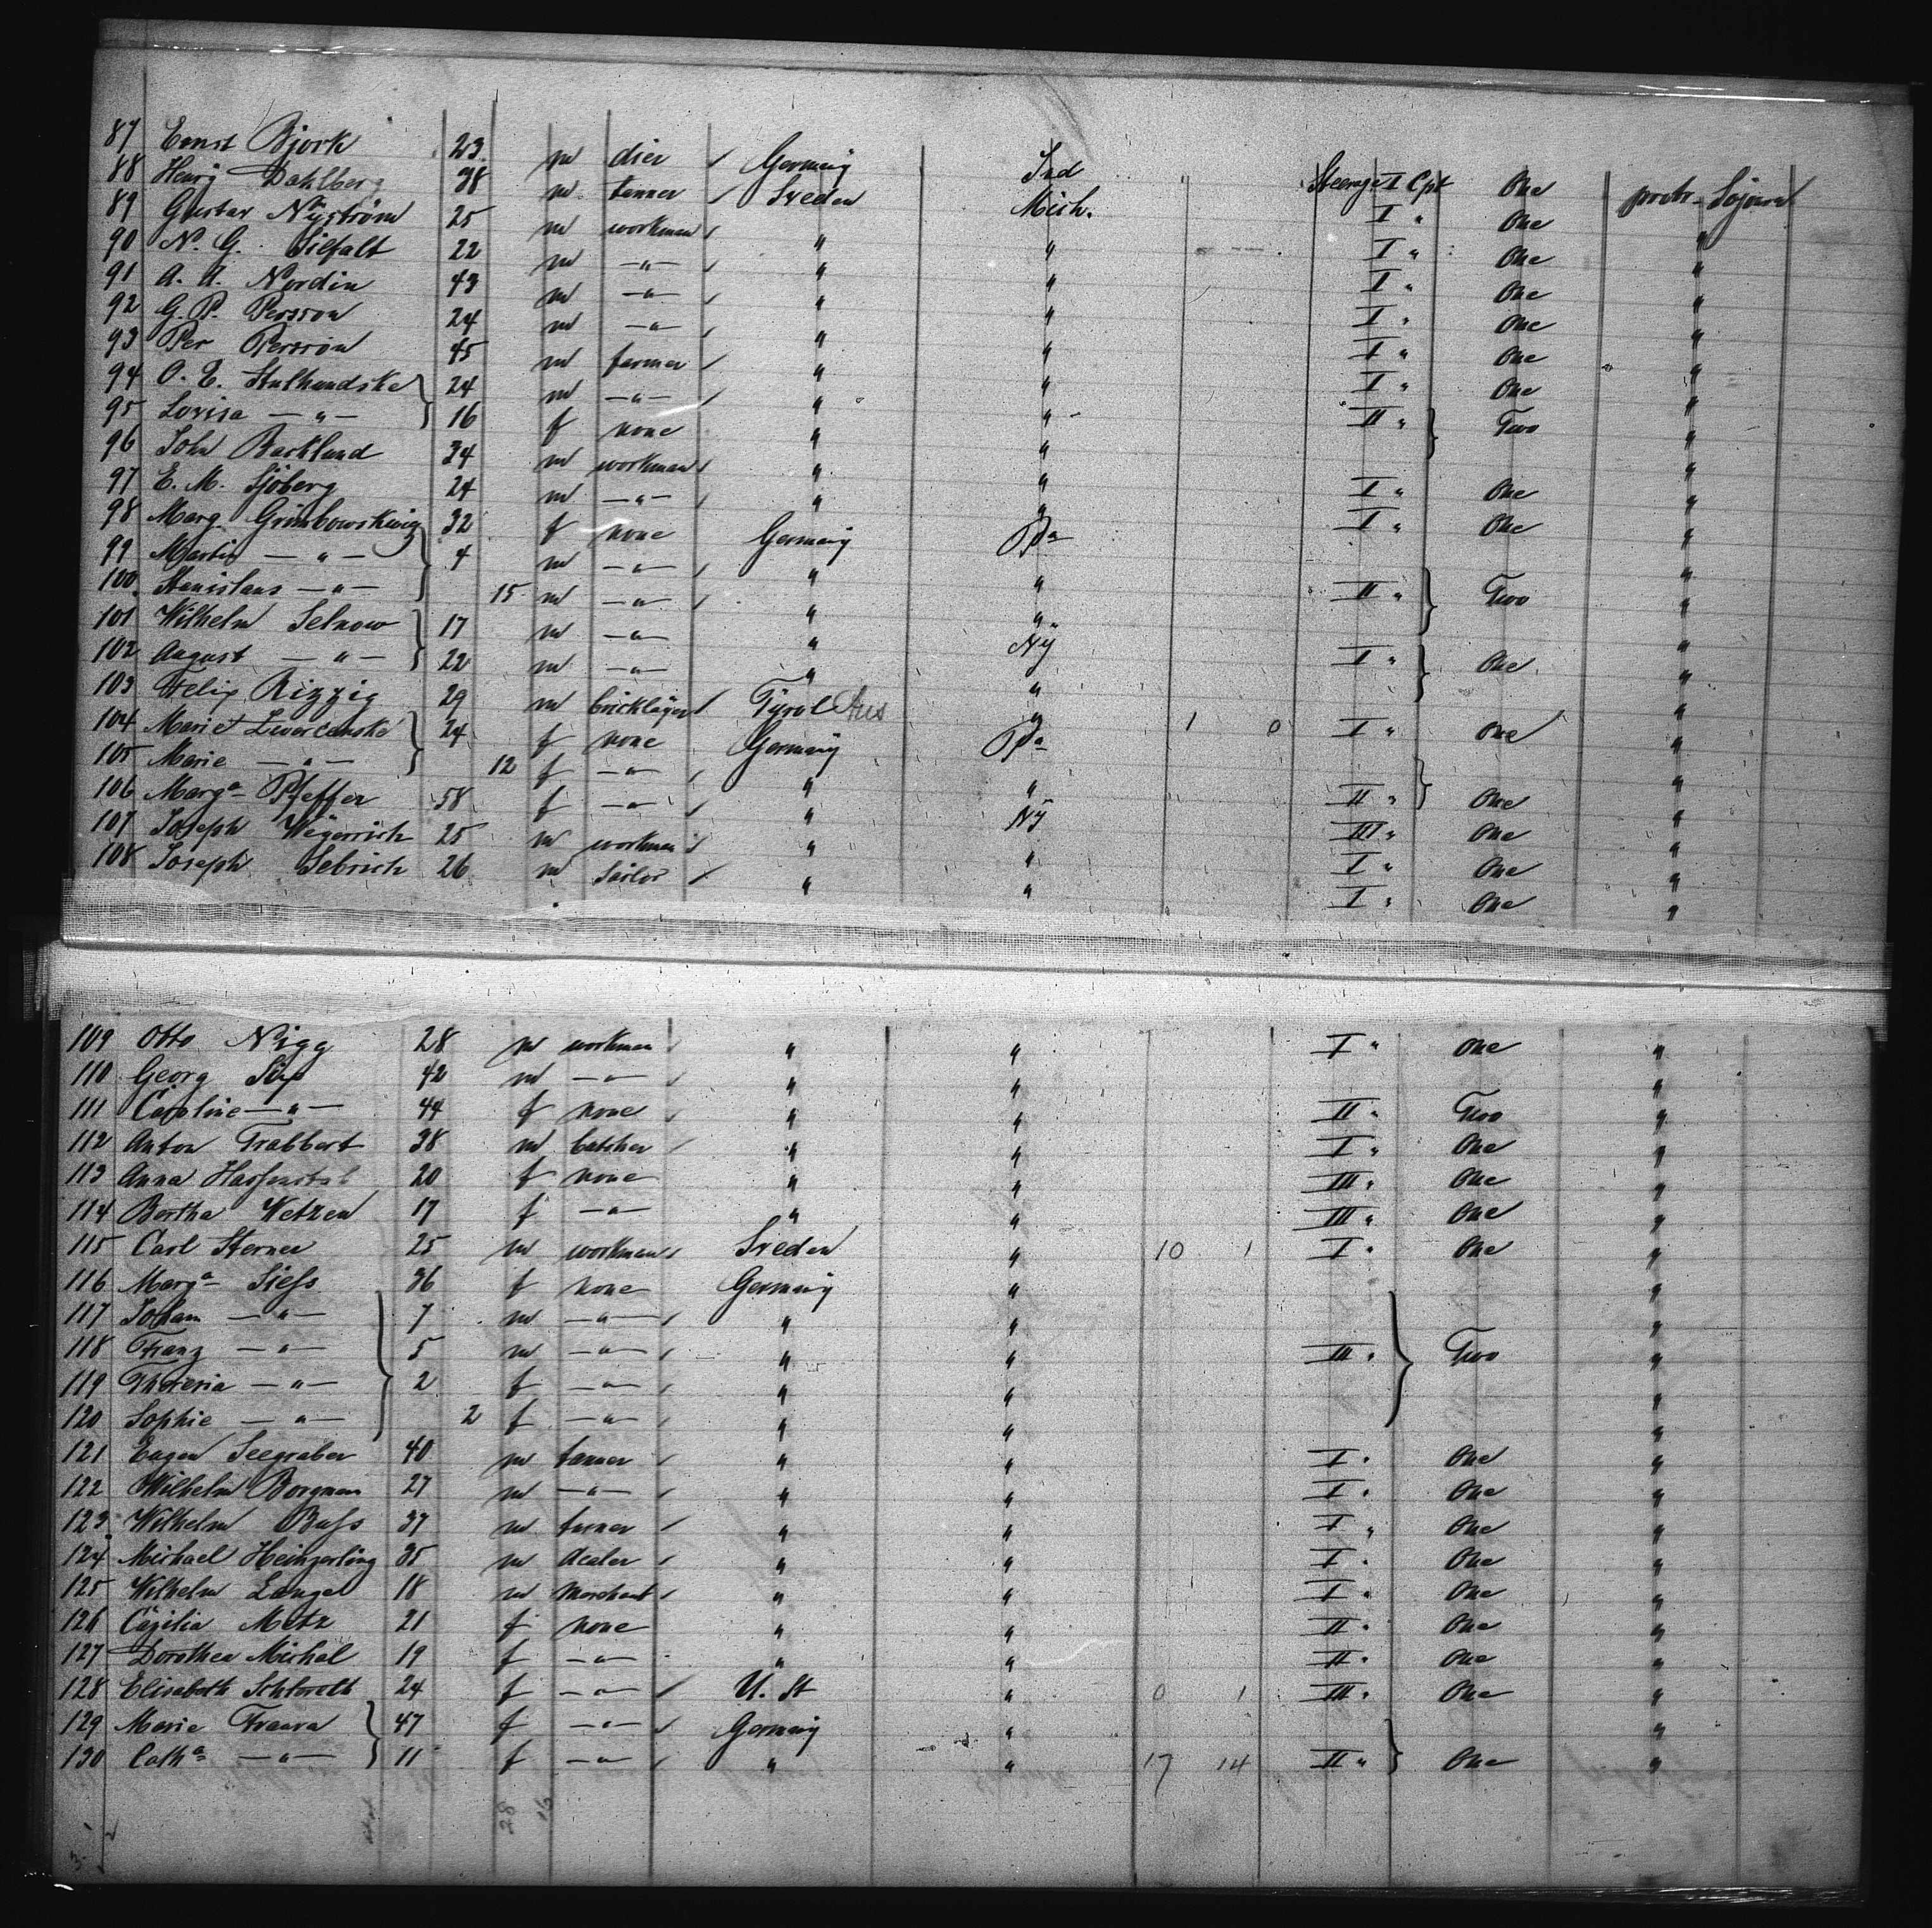 87 Ernst Bjork 23 m dier Germany Ind Steerage I Cpt One protr. Sojourn
88 Henry Dahlberg 38 m tanner Sweden Mich. I " One "
89 Gustav Nyström 25 m workman " " I " One "
90 N. G. Silfalt 22 m —"— " " I " One "
91 A. A. Nordin 43 m —"— " " I " One "
92 G. P. Persson 24 m —"— " " I " One "
93 Per Persson 45 m farmer " " I " One "
94 O. E. Stulhandske 24 m —"— " " "
95 Lovisa —"— 16 f none " " II " Two "
96 John Backlund 34 m workman " " I " One "
97 E. M. Sjöberg 24 m —"— " " I " One "
98 Marg. 32 f none Germany Pa "
99 Martin —"— 4 m —"— " " "
100 Stanislaus —"— 15 m —"— " " II " Two "
101 Wilhelm Selnow 17 m —"— " Ny "
102 August —"— 22 m —"— " " I " One "
103 Felix Rizzig 29 m bricklayer Tyrol Aus " 1 0 I " One "
104 Marie 24 f none Germany Pa "
105 Marie —"— 12 f —"— " " II " One "
106 Marga Pfeffer 58 f —"— " Ny III " One "
107 Joseph Wegerrich 25 m workman " " I " One "
108 Joseph Sebrich 26 m Sailor " " I " One "
109 Otto Nigg 28 m workman " " I " One "
110 Georg 42 m —"— " " "
111 Caroline —"— 44 f none " " II " Two "
112 Anton Trabbert 38 m butcher " " I " One "
113 Anna 20 f none " " III " One "
114 Bertha Wetzen 17 f —"— " " III " One "
115 Carl Sterner 25 m workman Sweden " 10 1 I " One "
116 Marga Siefs 36 f none Germany " "
117 Johann —"— 7 m —"— " " "
118 Franz —"— 5 m —"— " " III " Two "
119 Theresia —"— 2 f —"— " " "
120 Sophie —"— 2 f —"— " " "
121 Eugen Seegraber 40 m tanner " " I " One "
122 Wilhelm Borgman 27 m —"— " " I " One "
123 Wilhelm Bufs 37 m turner " " I " One "
124 Michael Heinzerling 35 m dealer " " I " One "
125 Wilhelm Lengel 18 m Merchant " " I " One "
126 Cäzilia Metz 21 f none " " II " One "
127 Dorothea Michel 19 f —"— " " II " One "
128 Elisabeth 24 f —"— U. St " 0 1 III " One "
129 Marie 47 f —"— Germany " "
130 Catha —"— 11 f —"— " " 17 14 II " One "
28 16